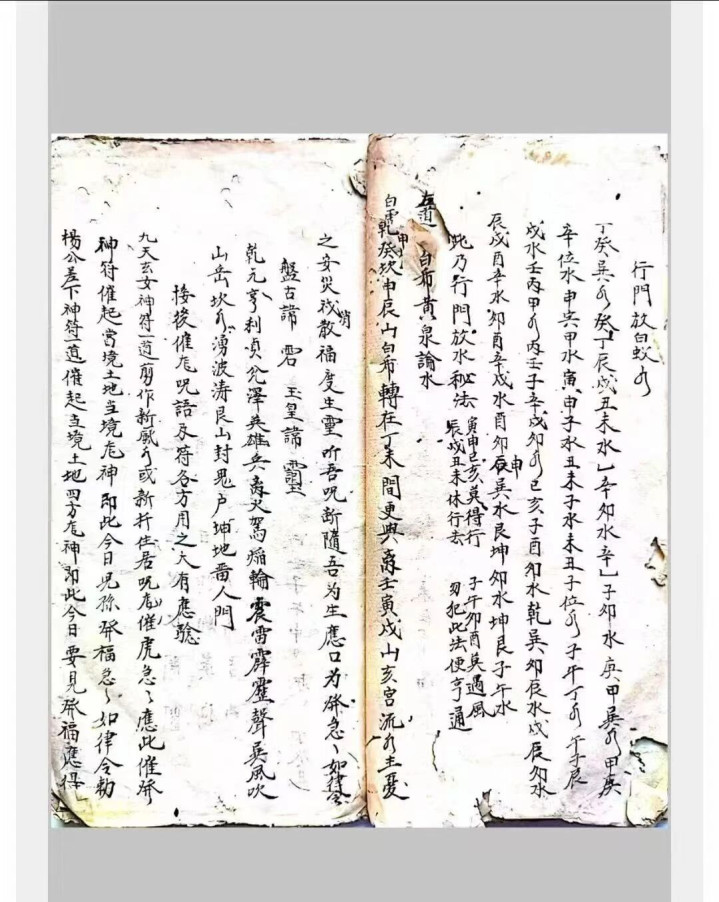 行門放白蚁水
丁癸巽水癸丁辰戌丑未水辛卯水辛子卯水庚甲巽水甲庚
辛位水申庚甲水寅申子水丑未子水未丑子位水子午丁水午子辰
戌水壬丙甲水丙壬子辛戌卯水巳亥子酉卯水乾巽卯辰水戌辰卯水
辰戌酉辛水卯酉辛戌水酉卯辰申巽水艮坤卯水坤艮子午水
此乃行門放水秘法 寅申巳亥莫得行 子午卯酉莫過風
辰戌丑未休行去 犯此法便亨通
白布黃泉論水
乾甲癸坎申辰山白布轉在丁未間更與离壬寅戌山亥宮流水主憂
之安災殃消散福度生靈听吾咒断隨吾为生應口为發急々如律令
盤古諱 玉皇諱
乾元亨利貞兊澤英雄兵离火駕焰輪震雷霹靂聲巽風吹
山岳坎水湧波涛艮山封鬼户坤地留人門
接後催龙咒語及符各方用之大有應驗
九天玄女神符一道剪作新风水或新扦住居咒龙催虎急々應此催發
神符催起當境土地当境龙神即此今日児孫發福急々如律令勅
楊公差下神符一道催起当境土地四方龙神即此今日要見發福應得